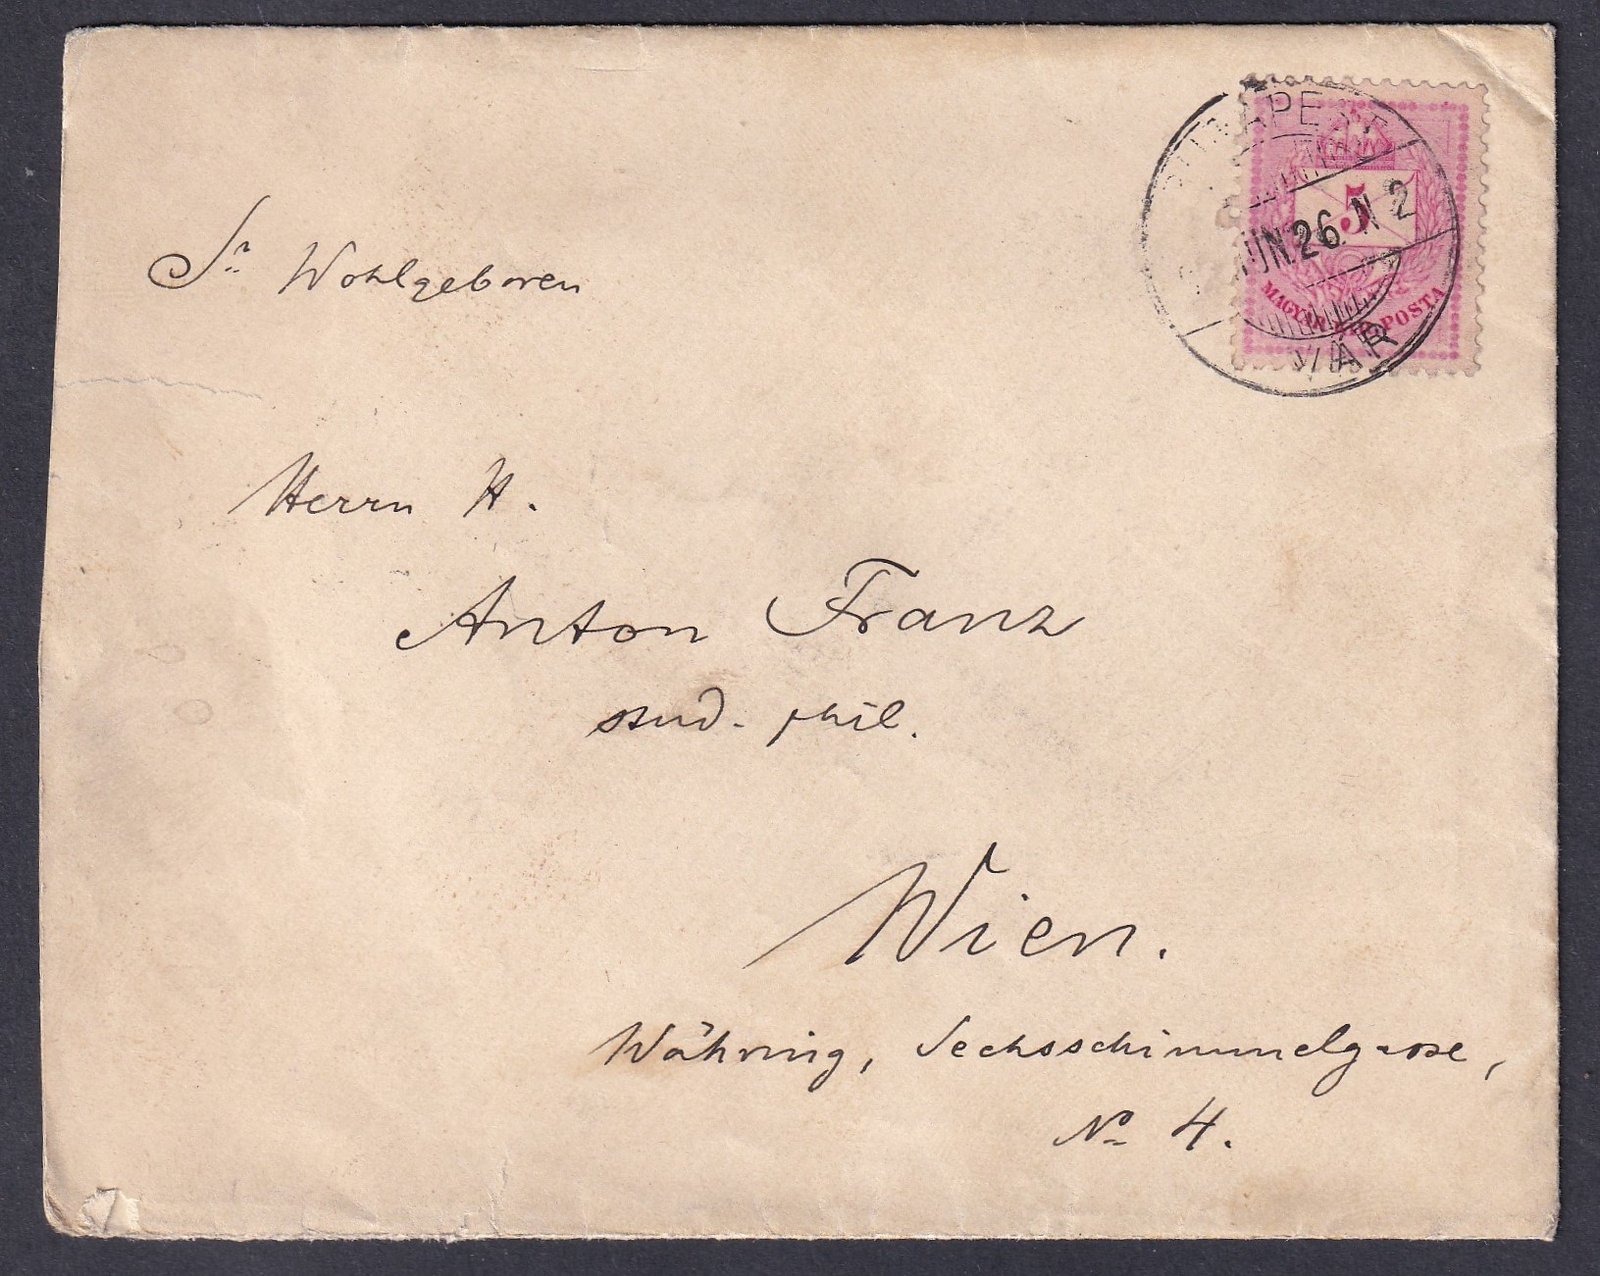 Sr. Wohlgeboren
Herrn H.
Anton Franz
stud. phil.
Wien.
Währing, Sechsschimmelgasse,
No 4.
BUDAPEST
JUN. 26. N 2
VÁR
5
MAGYAR KIR. POSTA